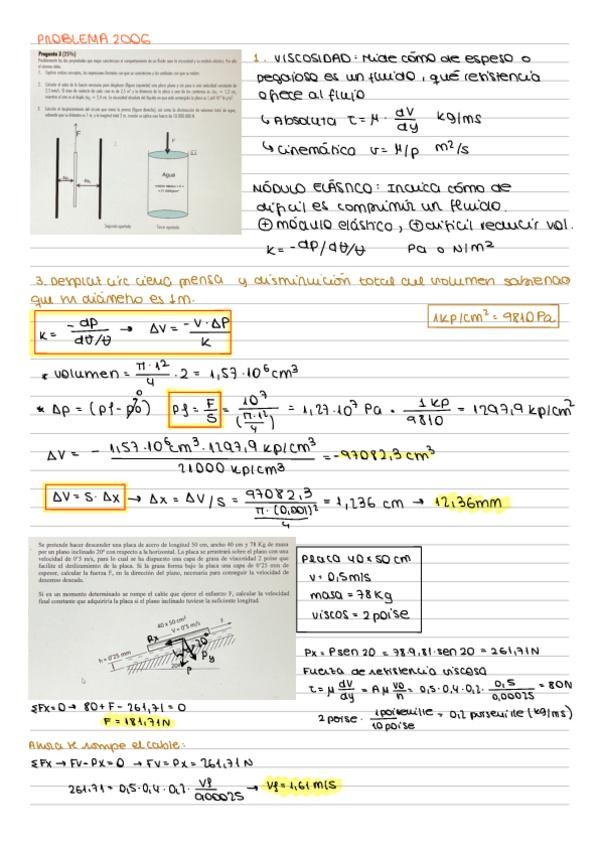 PROBLEMA 2006
Pregunta 3 (25%)
1. VISCOSIDAD: Mide cómo de espeso o
pegajoso es un fluido, qué resistencia
ofrece al flujo
↳ Absoluta τ = μ · dV/dy kg/ms
↳ Cinemático υ = μ/ρ m²/s
Agua
Segundo apartado
Tercer apartado
MÓDULO ELÁSTICO: Indica cómo de
dificil es comprimir un fluido.
⊕ módulo elástico, ⊕ dificil reducir vol.
K = -dp/dϑ/ϑ Pa o N/m²
3. Desplaz circ cienc prensa y disminuición total del volumen sabiendo
que su diámetro es 1m.
K = -dp / dϑ/ϑ → ΔV = -V·ΔP / K
1kp/cm² = 9810Pa
* Volumen = π·1²/4 · 2 = 1,57·10⁶cm³
* Δp = (pf - p0)⁰ pf = F/S = 10⁷/(π·1²/4) = 1,27·10⁷ Pa · 1 kp/9810 = 1297,9 kp/cm²
ΔV = - 1,57·10⁶cm³·1297,9 kp/cm³ / 21000 kp/cm³ = -97082,3 cm³
ΔV = S·Δx → Δx = ΔV/S = 97082,3 / π·(0,001)²/4 = 1,236 cm → 12,36mm
Se pretende hacer descender una placa de acero de longitud 50 cm, ancho 40 cm y 78 Kg de masa
por un plano inclinado 20º con respecto a la horizontal. La placa se arrastrará sobre el plano con una
velocidad de 0'5 m/s, para lo cual se ha dispuesto una capa de grasa de viscosidad 2 poise que
facilite el deslizamiento de la placa. Si la grasa forma bajo la placa una capa de 0'25 mm de
espesor, calcular la fuerza F, en la dirección del plano, necesaria para conseguir la velocidad de
descenso deseada.
Si en un momento determinado se rompe el cable que ejerce el esfuerzo F, calcular la velocidad
final constante que adquiriría la placa si el plano inclinado tuviese la suficiente longitud.
Placa 40 x 50 cm
v = 0,5m/s
masa = 78Kg
viscos = 2 poise
40 x 50 cm²
V = 0'5 m/s
Px
Py
P
h = 0'25 mm
20º
Px = P sen 20 = 78·9,81·sen 20 = 261,71N
Fuerza de resistencia viscosa
τ = μ dV/dy = A μ v0/n = 0,5·0,4·0,2 · 0,5/0,00025 = 80N
2 poise · 1 poiseuille/10 poise = 0,2 purseuille (kg/ms)
ΣFx = 0 → 80 + F - 261,71 = 0
F = 181,71N
Ahora se rompe el cable:
ΣFx → Fv - Px = 0 → Fv = Px = 261,71 N
261,71 = 0,5·0,4·0,2 · Vf/0,00025 → Vf = 1,61 m/s